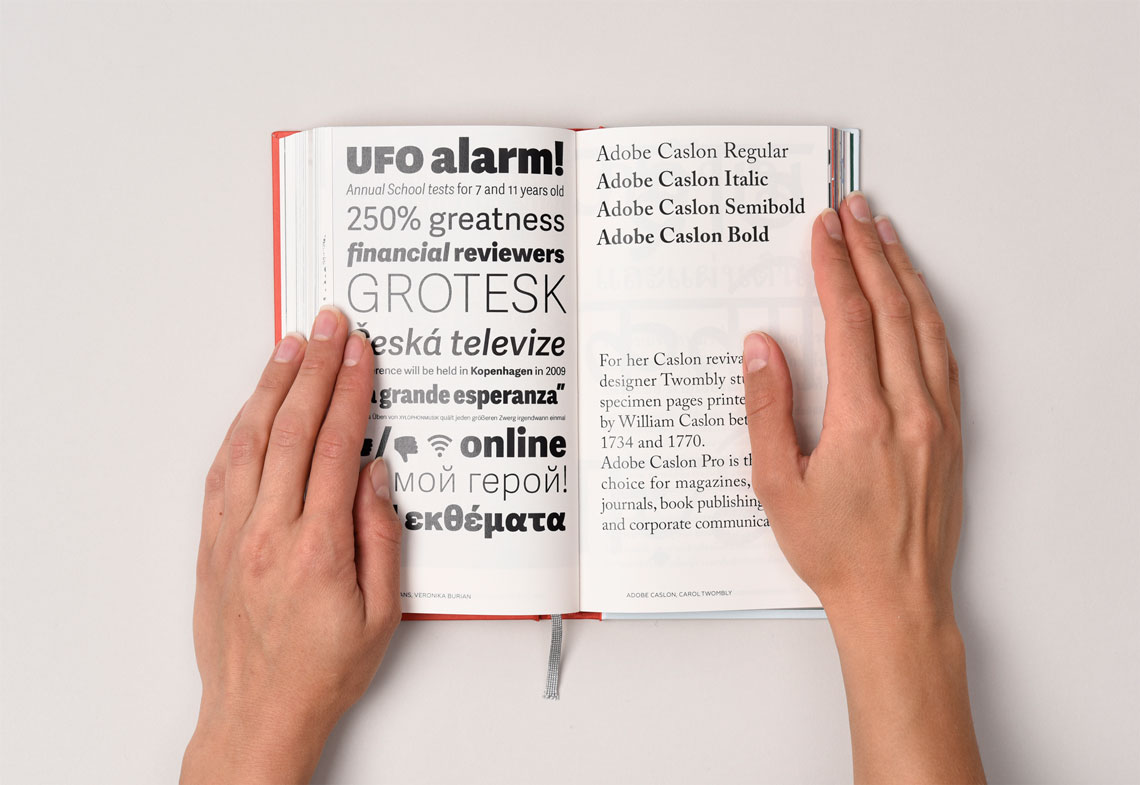 UFO alarm!
Annual School tests for 7 and 11 years old
250% greatness
financial reviewers
GROTESK
Česká televize
will be held in Kopenhagen in 2009
grande esperanza"
Üben von XYLOPHONMUSIK quält jeden größeren Zwerg irgendwann einmal
/ online
мой герой!
εκθέματα
VERONIKA BURIAN
Adobe Caslon Regular
Adobe Caslon Italic
Adobe Caslon Semibold
Adobe Caslon Bold
For her Caslon
designer Twombly
specimen pages
by William Caslon
1734 and 1770.
Adobe Caslon Pro is
choice for magazines,
journals, book publishing
and corporate
ADOBE CASLON, CAROL TWOMBLY